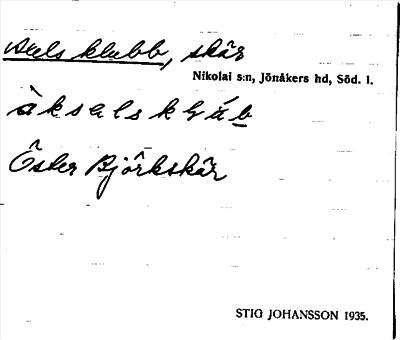 Axels klubb, skär
Nikolai s:n, Jönåkers hd, Söd. l.
Öster Björkskär
STIG JOHANSSON 1935.